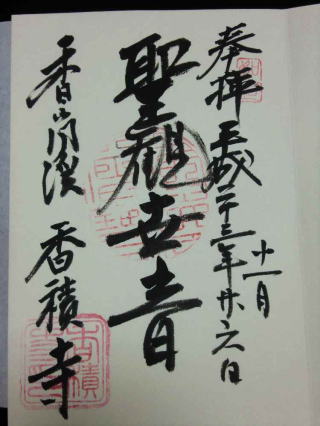 奉拝 平成二十三年十一月廿六日
聖観世音
香嵐渓 香積寺